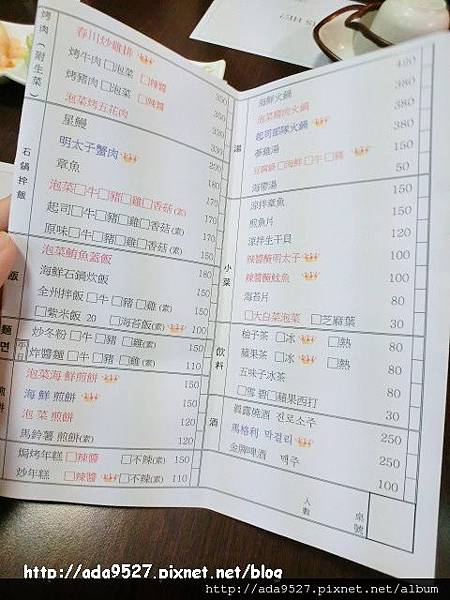 烤肉(附生菜)
春川炒雞排 350
烤牛肉 □泡菜 □辣醬 350
烤豬肉 □泡菜 □辣醬 300
泡菜烤五花肉 330
星鰻 300
石鍋拌飯
明太子蟹肉 200
章魚 180
泡菜 □牛 □豬 □雞 □香菇(素) 170
起司 □牛 □豬 □雞 □香菇(素) 170
原味 □牛 □豬 □雞 □香菇(素) 150
飯
泡菜鮪魚蓋飯 180
海鮮石鍋炊飯 150
全州拌飯 □牛 □豬 □雞(素) 150
□紫米飯 20 □海苔飯(素) 30
麵
炒冬粉 □牛 □豬 □雞(素) 120
炸醬麵 □牛 □豬 □雞(素) 110
泡菜海鮮煎餅 150
海鮮煎餅 150
泡菜煎餅 120
馬鈴薯煎餅(素) 120
焗烤年糕 □辣醬 □不辣(素) 150
炒年糕 □辣醬 □不辣(素) 110
湯
420
海鮮火鍋 380
泡菜豬肉火鍋 380
起司部隊火鍋 380
蔘雞湯
豆腐鍋 □海鮮 □牛 □豬 150
海帶湯 50
小菜
涼拌章魚 150
煎魚片 150
涼拌生干貝 150
辣醬醃明太子 100
辣醬醃魷魚 100
海苔片 80
□大白菜泡菜 □芝麻葉 30
飲料
柚子茶 □冰 □熱 80
蘋果茶 □冰 □熱 80
五味子冰茶 80
□雪碧 □蘋果西打 30
酒
真露燒酒 진로소주 250
馬格利 막걸리 250
金牌啤酒 맥주 100
人數
桌號
http://ada9527.pixnet.net/blog
http://ada9527.pixnet.net/album